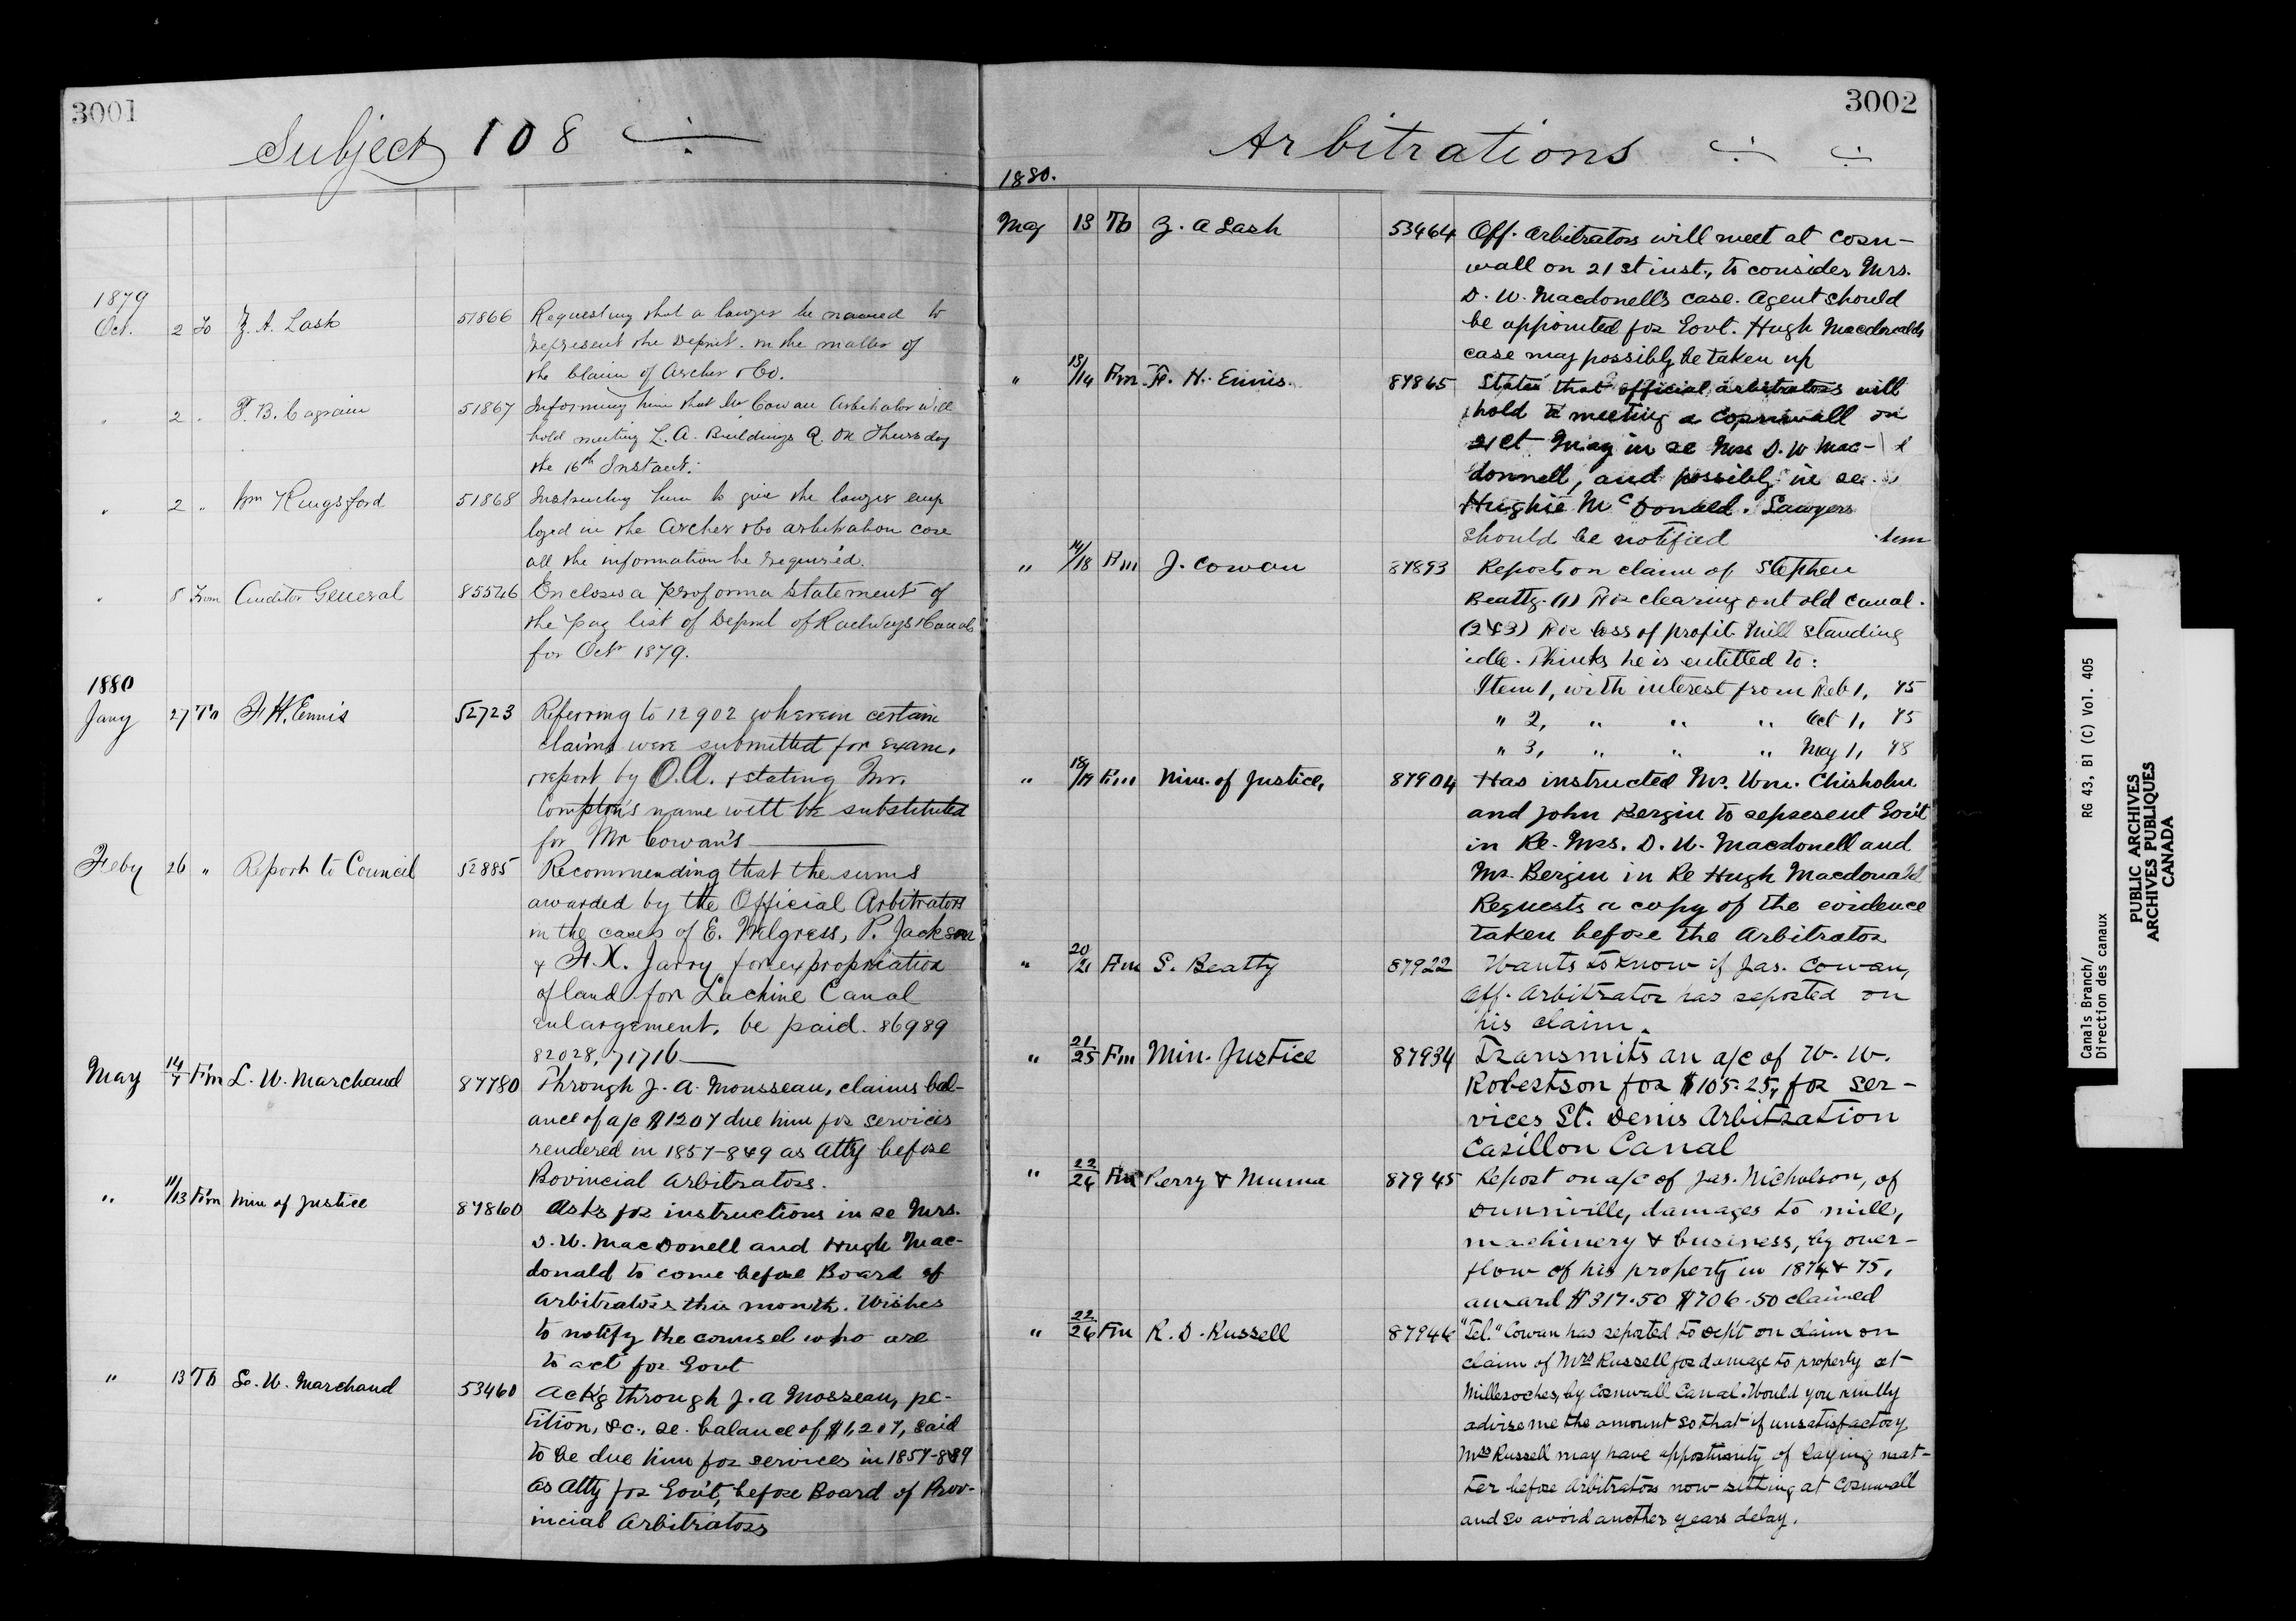 3001
Subject 108
1879
Oct. 2 To Z. A. Lash 51866 Requesting that a lawyer be named to
represent the Depmt. in the matter of
the Claim of Archer & Co.
" 2 " P. B. Casgrain 51867 Informing him that Mr Cowan Arbitrator will
hold meeting L. A. Buildings Q. on Thursday
the 16th Instant.
" 2 " Wm Kingsford 51868 Instructing him to give the lawyer emp
loyed in the Archer & Co arbitration case
all the information he required.
" 8 From Auditor General 85546 Encloses a proforma statement of
the pay list of Depmt of Railways & Canals
for Oct 1879.
1880
Jany 27 To F. H. Ennis 52723 Referring to 12902 wherein certain
claims were submitted for exam.
& report by O.A. & stating Mr.
Compton's name will be substituted
for Mr Cowan's
Feby 26 " Report to Council 52885 Recommending that the sums
awarded by the Official Arbitrators
in the cases of E. Wilgress, P. Jackson
& F. X. Jarry for expropriation
of land for Lachine Canal
enlargement, be paid. 86989
82028, 71716
May 14/7 F'm L. W. Marchand 87780 Through J. A. Mousseau, claims bal-
ance of a/c $1207 due him for services
rendered in 1857-8&9 as Atty before
Provincial Arbitrators.
" 11/13 F'm Min of Justice 87860 Asks for instructions in re Mrs.
D. W. MacDonell and Hugh Mac-
donald to come before Board of
Arbitrators this month. Wishes
to notify the counsel who are
to act for Govt
" 13 To L. W. Marchand 53460 Ack'g through J. A Mosseau, pe-
tition, &c., re. balance of $1,207, said
to be due him for services in 1857-8&9
as Atty for Gov't, before Board of Prov-
incial Arbitrators
3002
Arbitrations
1880.
May 13 To Z. A Lash 53464 Off. Arbitrators will meet at Corn-
wall on 21st inst., to consider Mrs.
D. W. Macdonell's case. Agent should
be appointed for Govt. Hugh Macdonald's
case may possibly be taken up
" 13/14 F'm F. H. Ennis. 87865 States that official arbitrators will
hold a meeting a Cornwall on
21st May in re Mrs D. W Mac-
donnell, and possibly in re
Hughie McDonald. Lawyers
should be notified
" 14/18 F'm J. Cowan 87893 Reports on claim of Stephen
Beatty. (1) For clearing out old canal.
(2&3) For loss of profit. Mill standing
idle. Thinks he is entitled to:
Item 1, with interest from Feb 1, 75
" 2, " " " Oct 1, 75
" 3, " " " May 1, 78
" 18/19 F'm Min. of Justice, 87904 Has instructed Mr. Wm. Chisholm
and John Bergin to represent Gov't
in Re. Mrs. D. W. Macdonell and
Mr. Bergin in Re Hugh Macdonald
Requests a copy of the evidence
taken before the Arbitrator
" 20/21 F'm S. Beatty 87922 Wants to know if Jas. Cowan,
Off. Arbitrator has reported on
his claim.
" 21/25 F'm Min. Justice 87934 Transmits an a/c of W. W.
Robertson for $105.25, for ser-
vices St. Denis Arbitration
Carillon Canal
" 22/26 F'm Perry & Muma 87945 Report on a/c of Jas. Nicholson, of
Dunnville, damages to mill,
machinery & business, by over-
flow of his property in 1874 & 75,
award $317.50 $706.50 claimed
" 22/26 F'm R. D. Russell 87946 "Tel." Cowan has reported to Dep't on claim on
claim of Mrs Russell for damage to property at
Milleroches, by Cornwall Canal. Would you kindly
advise me the amount so that if unsatisfactory
Mrs Russell may have opportunity of laying mat-
ter before Arbitrators now sitting at Cornwall
and so avoid another years delay.
Canals Branch/ RG 43, B1 (C) Vol. 405
Direction des canaux
PUBLIC ARCHIVES
ARCHIVES PUBLIQUES
CANADA